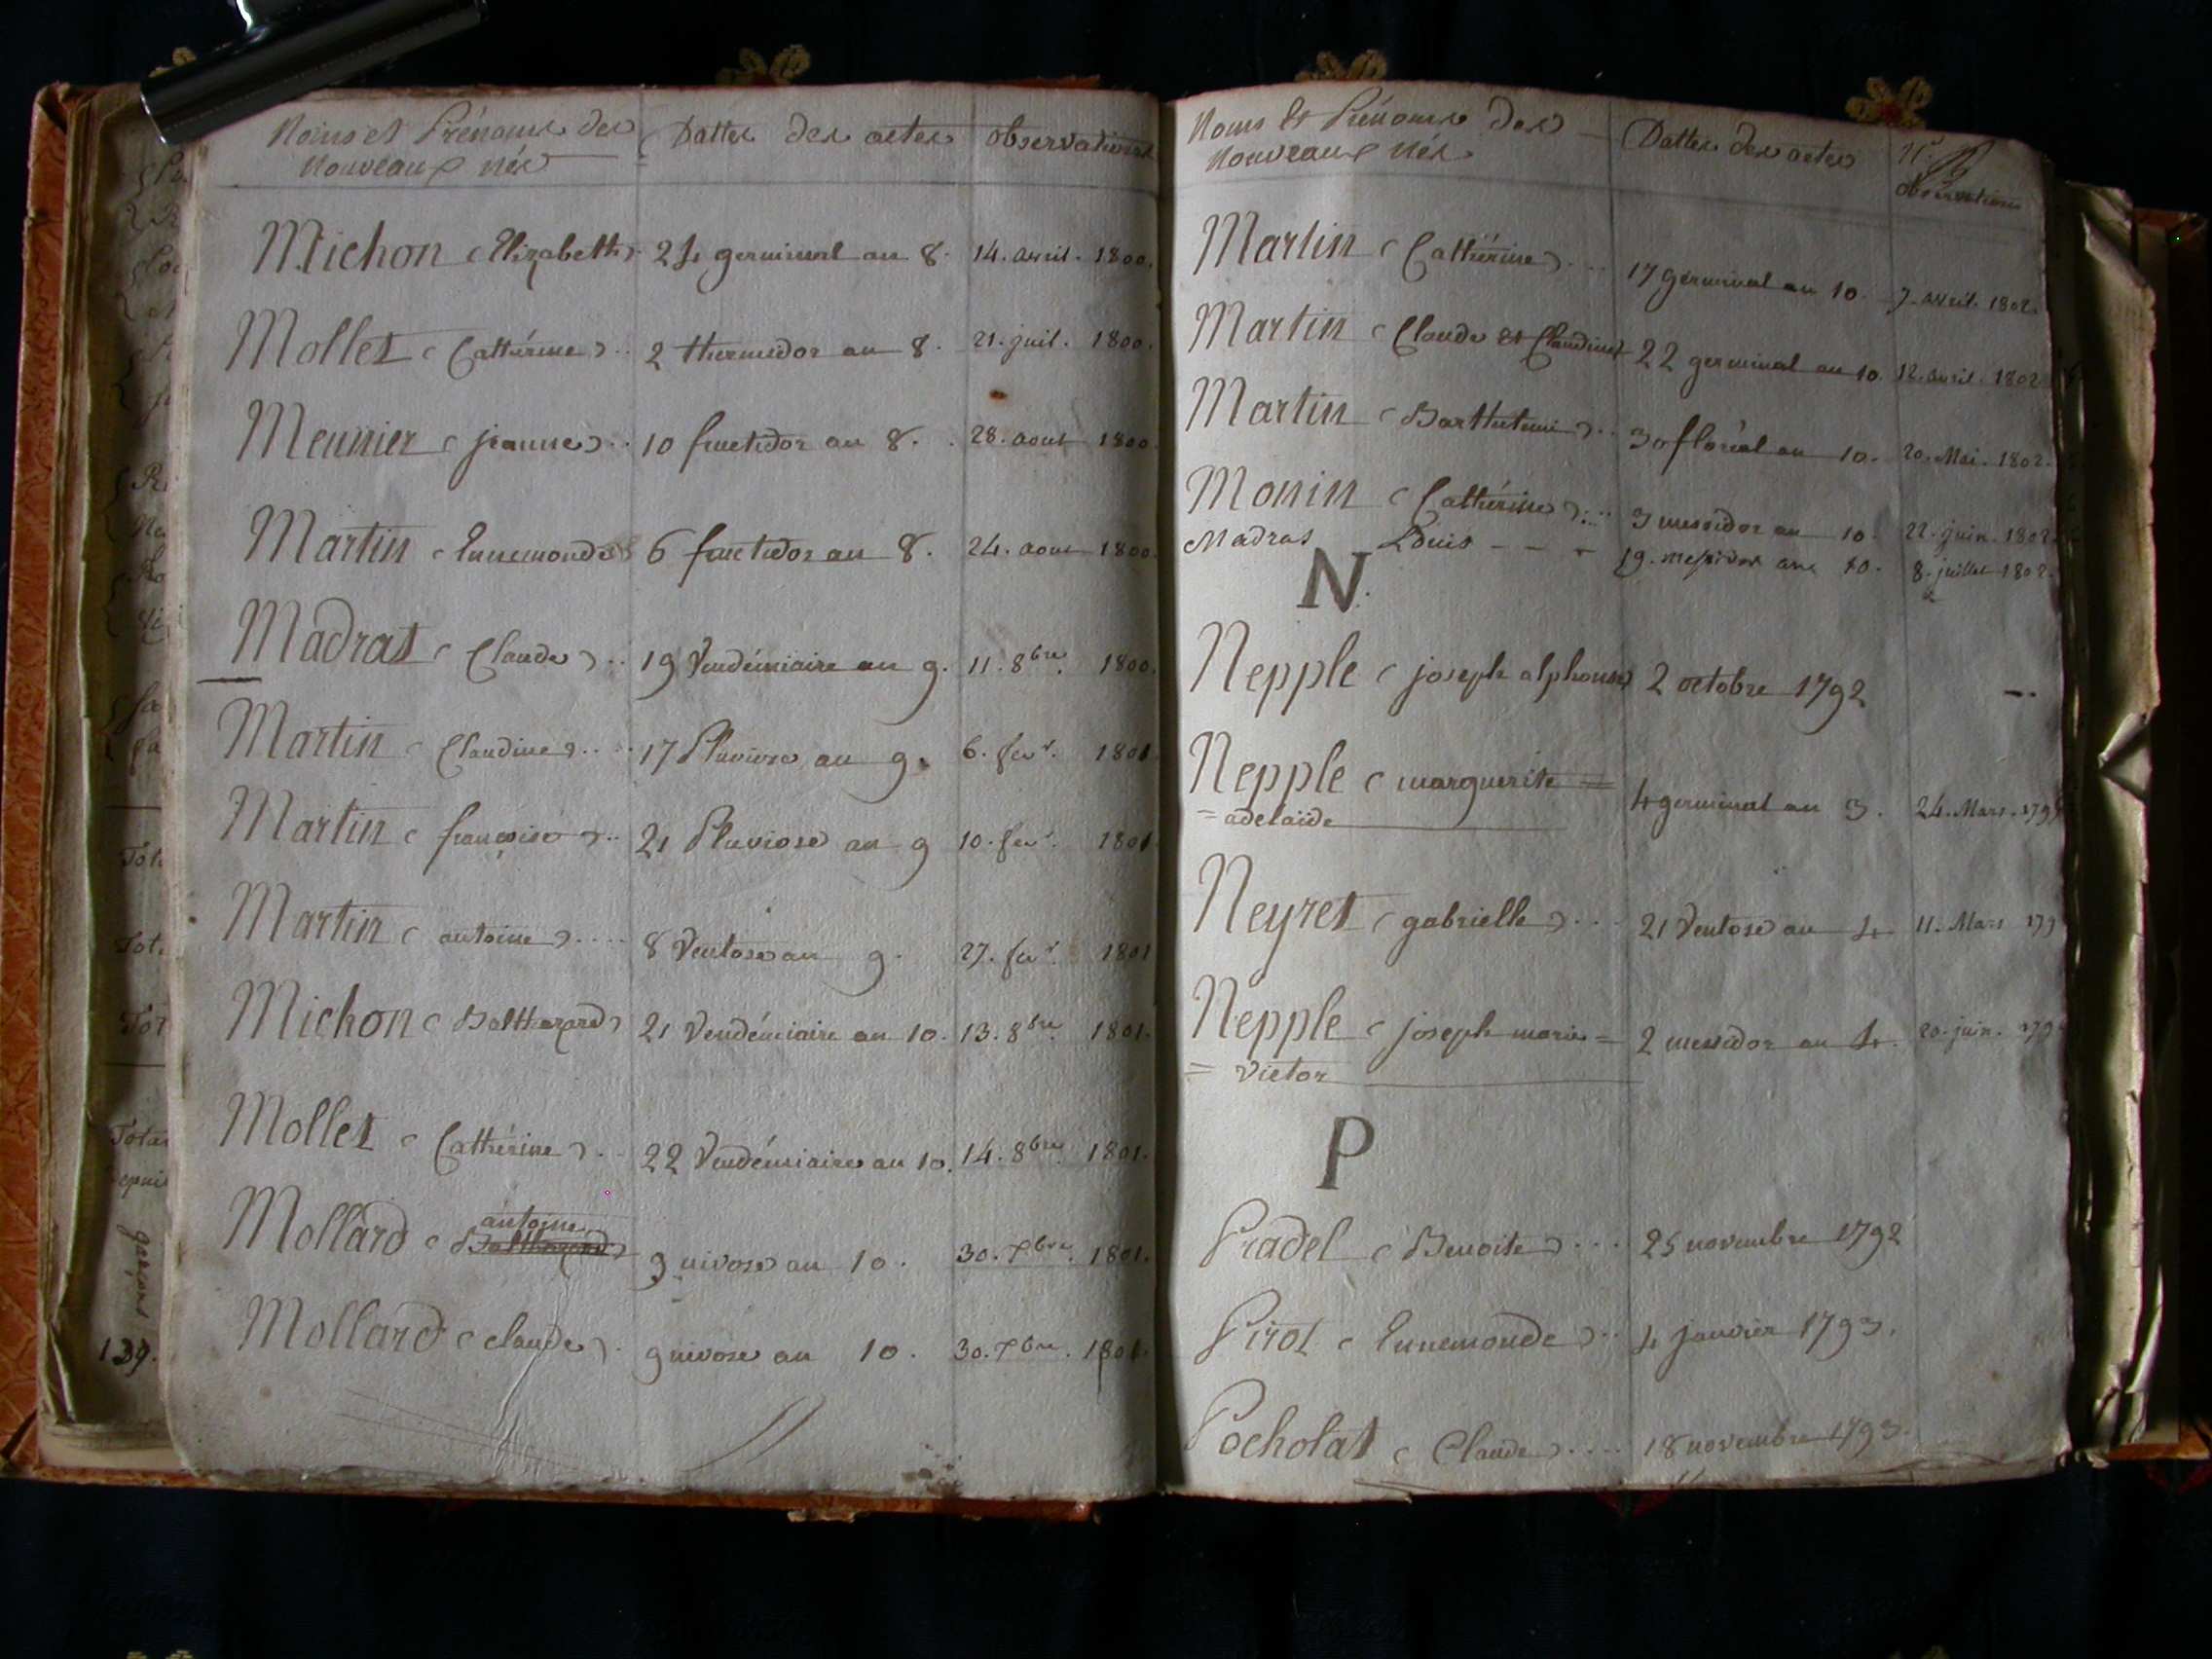 Noms et Prénoms des
Nouveaux nés
Dattes des actes
observations
Michon (Elizabeth) 24 germinal an 8. 14. avril. 1800.
Mollet (Catthérine) .. 2 thermidor an 8. 21. juil. 1800.
Meunier (jeanne) .. 10 fructidor an 8. 28. aout 1800
Martin (Ennemonde) 6 fructidor an 8. 24. aout 1800.
Madrat (Claude) .. 19 Vendémiaire an 9. 11. 8bre. 1800.
Martin (Claudine) .... 17 Pluviose an 9. 6. fevr. 1801
Martin (françoise) .. 21 Pluviose an 9 10. fevr. 1801
Martin (antoine) .... 8 Ventose an 9. 27. fevr. 1801
Michon (Balthazard) 21 Vendémiaire an 10. 13. 8bre. 1801.
Mollet (Catthérine) .. 22 Vendémiaire an 10. 14. 8bre. 1801.
antoine
Mollard (Balthazard) 9 nivose an 10. 30. Xbre. 1801.
Mollard (claude). 9 nivose an 10. 30. Xbre. 1801.
garçons
139.
Noms et Prénoms des
Nouveaux nés
Dattes des actes
observations
Martin (Catthérine) .... 17 germinal an 10. 7. avril. 1802.
Martin (Claude et Claudine) 22 germinal an 10. 12. avril. 1802
Martin (Barthelemi) .. 30 floréal an 10. 20. Mai. 1802.
Monin (Catthérine) .... 3 messidor an 10. 22. juin. 1802.
Madras Louis - - - 19. messidor an 10. 8. juillet 1802.
N.
Nepple (joseph alphonse) 2 octobre 1792
Nepple (marguerite = 4 germinal an 3. 24. Mars. 179
= adelaide
Neyret (gabrielle) .... 21 Ventose an 4 11. Mars 179
Nepple (joseph marie = 2 messidor an 4. 20. juin. 179
= victor
P
Pradel (Benoite) .... 25 novembre 1792
Pirot (Ennemonde) .. 4 janvier 1793.
Pocholat (Claude) .... 18 novembre 1793.